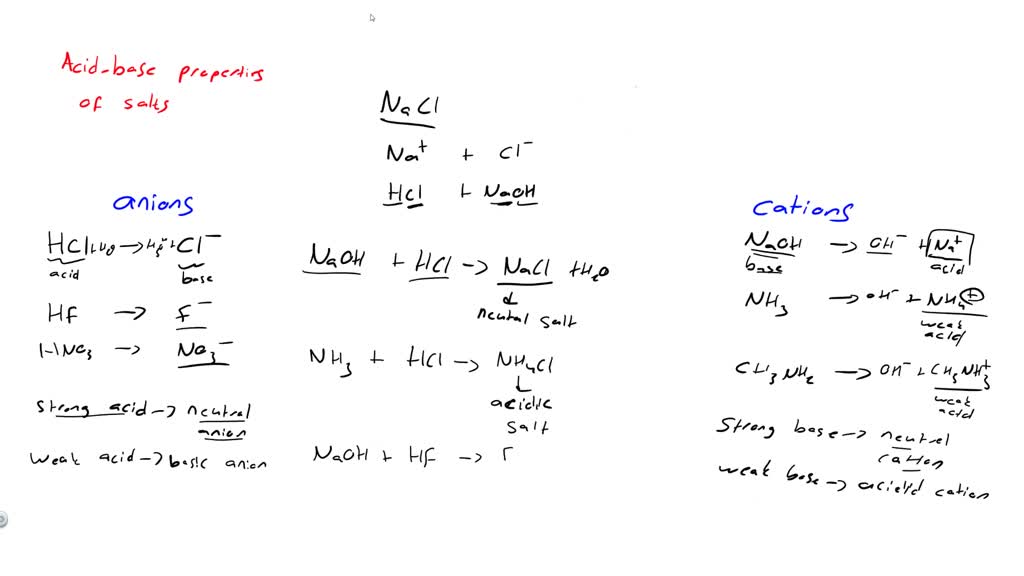 Acid-base properties
of salts
NaCl
Na⁺ + Cl⁻
HCl + NaOH
anions
HCl + H₂O → H₃O⁺ + Cl⁻
acid base
HF → F⁻
HNO₃ → NO₃⁻
strong acid → neutral
anion
weak acid → basic anion
NaOH + HCl → NaCl + H₂O
neutral salt
NH₃ + HCl → NH₄Cl
acidic
salt
NaOH + HF →
cations
NaOH → OH⁻ + Na⁺
base acid
NH₃ → OH⁻ + NH₄⁺
weak
acid
CH₃NH₂ → OH⁻ + CH₃NH₃⁺
weak
acid
Strong base → neutral
cation
weak base → acidic cation